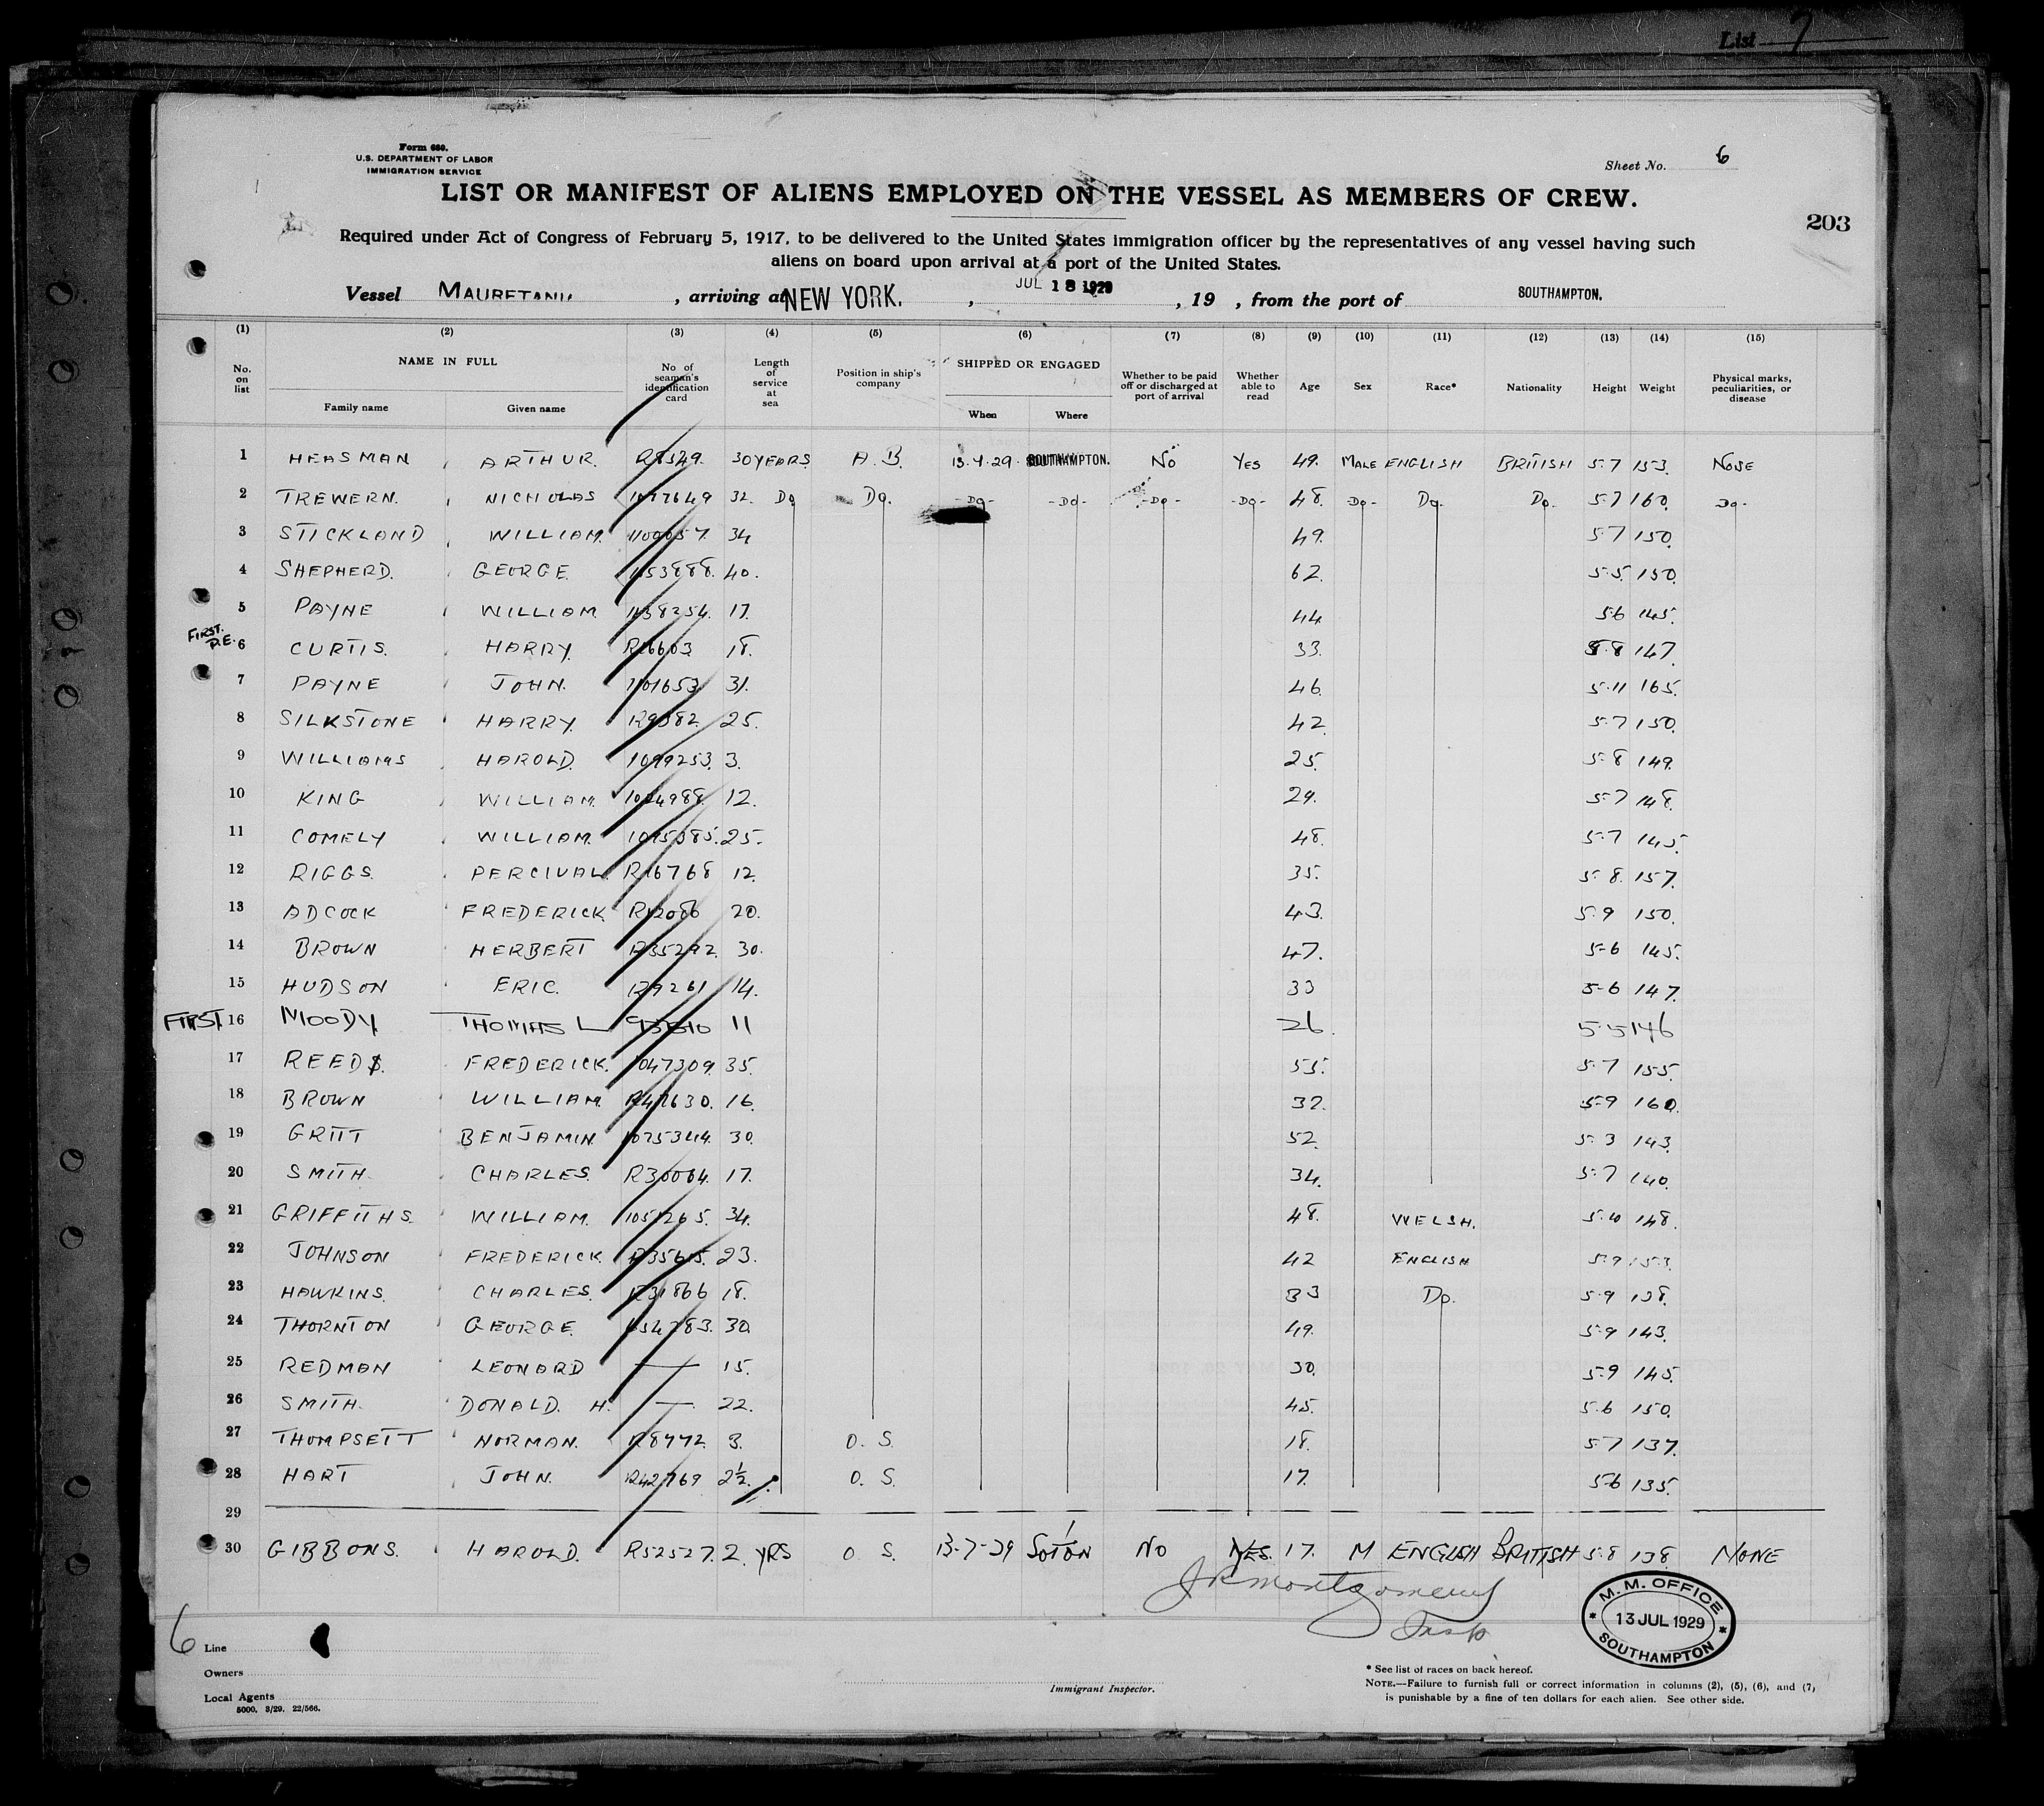 List 7
Form 680.
U.S. DEPARTMENT OF LABOR
IMMIGRATION SERVICE
Sheet No. 6
LIST OR MANIFEST OF ALIENS EMPLOYED ON THE VESSEL AS MEMBERS OF CREW.
203
Required under Act of Congress of February 5, 1917, to be delivered to the United States immigration officer by the representatives of any vessel having such
aliens on board upon arrival at a port of the United States.
Vessel MAURETANIA, arriving at NEW YORK. , JUL 18 1929 , 19 , from the port of SOUTHAMPTON.
(1) (2) (3) (4) (5) (6) (7) (8) (9) (10) (11) (12) (13) (14) (15)
No. on list NAME IN FULL Family name Given name No of seaman's identification card Length of service at sea Position in ship's company SHIPPED OR ENGAGED When Where Whether to be paid off or discharged at port of arrival Whether able to read Age Sex Race* Nationality Height Weight Physical marks, peculiarities, or disease
1 HEASMAN , ARTHUR. 30 YEARS A.B. SOUTHAMPTON. No YES 49. MALE ENGLISH BRITISH 5-7 153. NONE
2 TREWERN. , NICHOLAS 1077649 32. Do Do. -Do- -Do- -Do- -Do- 48. Do- Do. Do. 5-7 160. Do-
3 STICKLAND , WILLIAM. 34 49. 5-7 150.
4 SHEPHERD. , GEORGE. 40. 62. 5-5. 150.
5 PAYNE WILLIAM 17. 44 5-6 145.
FIRST. P.E. 6 CURTIS. HARRY. 18. 33. 5-8 147.
7 PAYNE JOHN. 1101653 31. 46. 5-11 165.
8 SILKSTONE HARRY. R9382 25. 42. 5-7 150.
9 WILLIAMS HAROLD. 1099253. 3. 25. 5-8 149.
10 KING WILLIAM. 1024988. 12. 29. 5-7 148.
11 COMELY WILLIAM. 1095385. 25. 48. 5-7 145.
12 RIGGS. PERCIVAL. R16768 12. 35. 5-8. 157.
13 ADCOCK FREDERICK. R12086 20. 43. 5-9 150.
14 BROWN HERBERT R35292. 30. 47. 5-6 145.
15 HUDSON ERIC. R9261 14. 33 5-6 147.
FIRST. 16 MOODY. THOMAS L 11 26. 5-5 146
17 REEDS. FREDERICK. 1047309. 35. 55. 5-7 155.
18 BROWN WILLIAM. 16. 32. 5-9 160.
19 GRITT BENJAMIN. 1075344. 30. 52. 5-3 143.
20 SMITH. CHARLES. R30064. 17. 34. 5-7 140.
21 GRIFFITHS. WILLIAM. 1051265. 34. 48. WELSH. 148.
22 JOHNSON FREDERICK. R35615. 23. 42 ENGLISH 5-9 153.
23 HAWKINS. CHARLES. R31866 18. 33 Do. 5-9 138.
24 THORNTON GEORGE. 30. 49. 5-9 143.
25 REDMAN LEONARD — 15. 30. 5-9 145.
26 SMITH. DONALD. H. — 22. 45. 5-6 150.
27 THOMPSETT NORMAN. 3. O.S. 18. 5-7 137.
28 HART JOHN. R42769 2½. O.S. 17. 5-6 135.
29
30 GIBBONS. HAROLD. R52527. 2. YRS O.S. 13-7-29 SOTON NO YES. 17. M ENGLISH BRITISH 5-8 138 NONE
J R Montgomery
Insp
M. M. OFFICE
13 JUL 1929
SOUTHAMPTON
6
Line
Owners
Local Agents
5000. 3/29. 22/566.
Immigrant Inspector.
* See list of races on back hereof.
NOTE.—Failure to furnish full or correct information in columns (2), (5), (6), and (7)
is punishable by a fine of ten dollars for each alien. See other side.